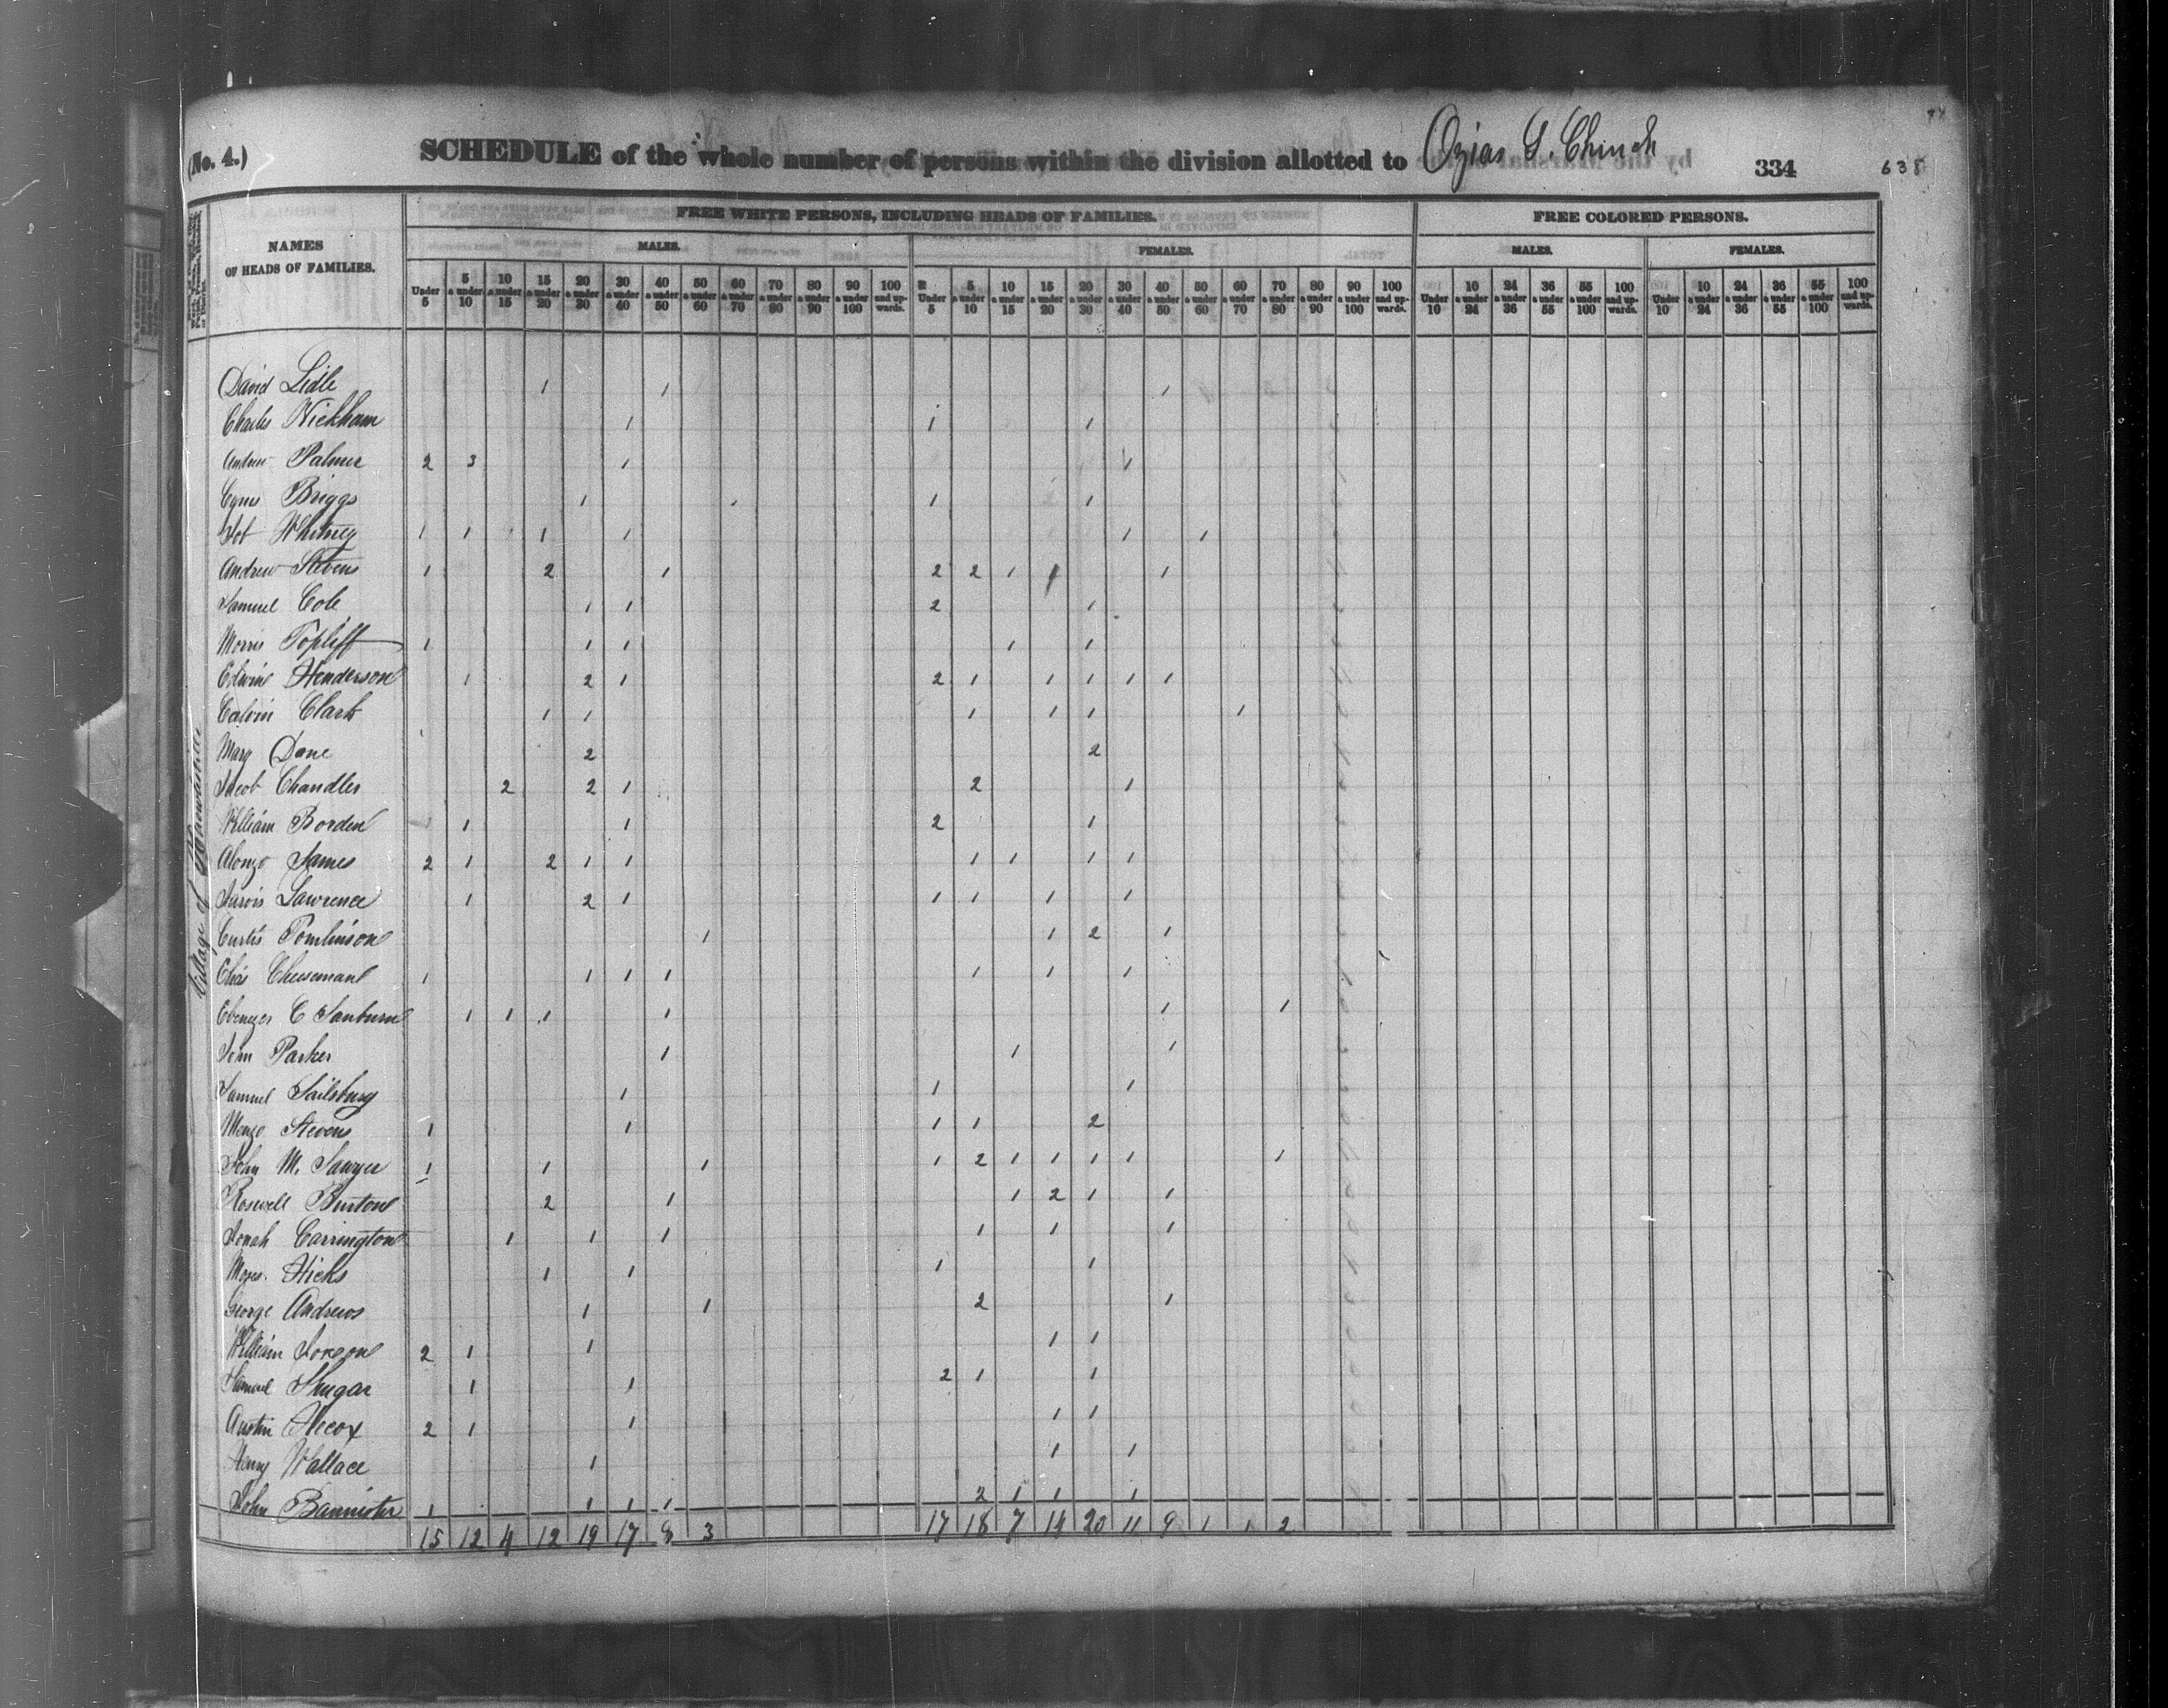 (No. 4.) SCHEDULE of the whole number of persons within the division allotted to Ozias S. Church 334 638
NAMES OF HEADS OF FAMILIES.
FREE WHITE PERSONS, INCLUDING HEADS OF FAMILIES. FREE COLORED PERSONS.
MALES. FEMALES. MALES. FEMALES.
Under 5 5 & under 10 10 & under 15 15 & under 20 20 & under 30 30 & under 40 40 & under 50 50 & under 60 60 & under 70 70 & under 80 80 & under 90 90 & under 100 100 and upwards. Under 5 5 & under 10 10 & under 15 15 & under 20 20 & under 30 30 & under 40 40 & under 50 50 & under 60 60 & under 70 70 & under 80 80 & under 90 90 & under 100 100 and upwards. Under 10 10 & under 24 24 & under 36 36 & under 55 55 & under 100 100 and upwards. Under 10 10 & under 24 24 & under 36 36 & under 55 55 & under 100 100 and upwards.
Village of
David Lidle 1 1 1
Charles Wickham 1 1 1
Andrew Palmer 2 3 1 1
Cyrus Briggs 1 1 1 1
Job Whitney 1 1 1 1 1 1
Andrew Stevens 1 2 1 2 2 1 1 1
Samuel Cole 1 1 2 1
Morris Topliff 1 1 1 1 1
Edwin Henderson 1 2 1 2 1 1 1 1 1
Calvin Clark 1 1 1 1 1 1
Mary Dane 2 2
Jacob Chandler 2 2 1 2 1
William Borden 1 1 2 1
Alonzo James 2 1 2 1 1 1 1 1 1
Jarvis Lawrence 1 2 1 1 1 1 1
Curtis Tomlinson 1 1 2 1
Cheseman 1 1 1 1 1 1 1
Ebenezer C Sanburn 1 1 1 1 1 1
John Parker 1 1 1
Samuel Sailsbury 1 1 1
Menzo Stevens 1 1 1 1 2
John M. Sawyer 1 1 1 1 2 1 1 1 1 1
Roswell Burton 2 1 1 2 1 1
Jonah Carrington 1 1 1 1 1 1
Moses Hicks 1 1 1 1
George Andrews 1 1 2 1
William 2 1 1 1 1
Samuel Shugar 1 1 2 1 1
Austin Hecox 2 1 1 1 1
Henry Wallace 1 1 1
John Bannister 1 1 1 1 2 1 1 1
15 12 4 12 19 17 9 3 17 18 7 14 20 11 9 1 1 2